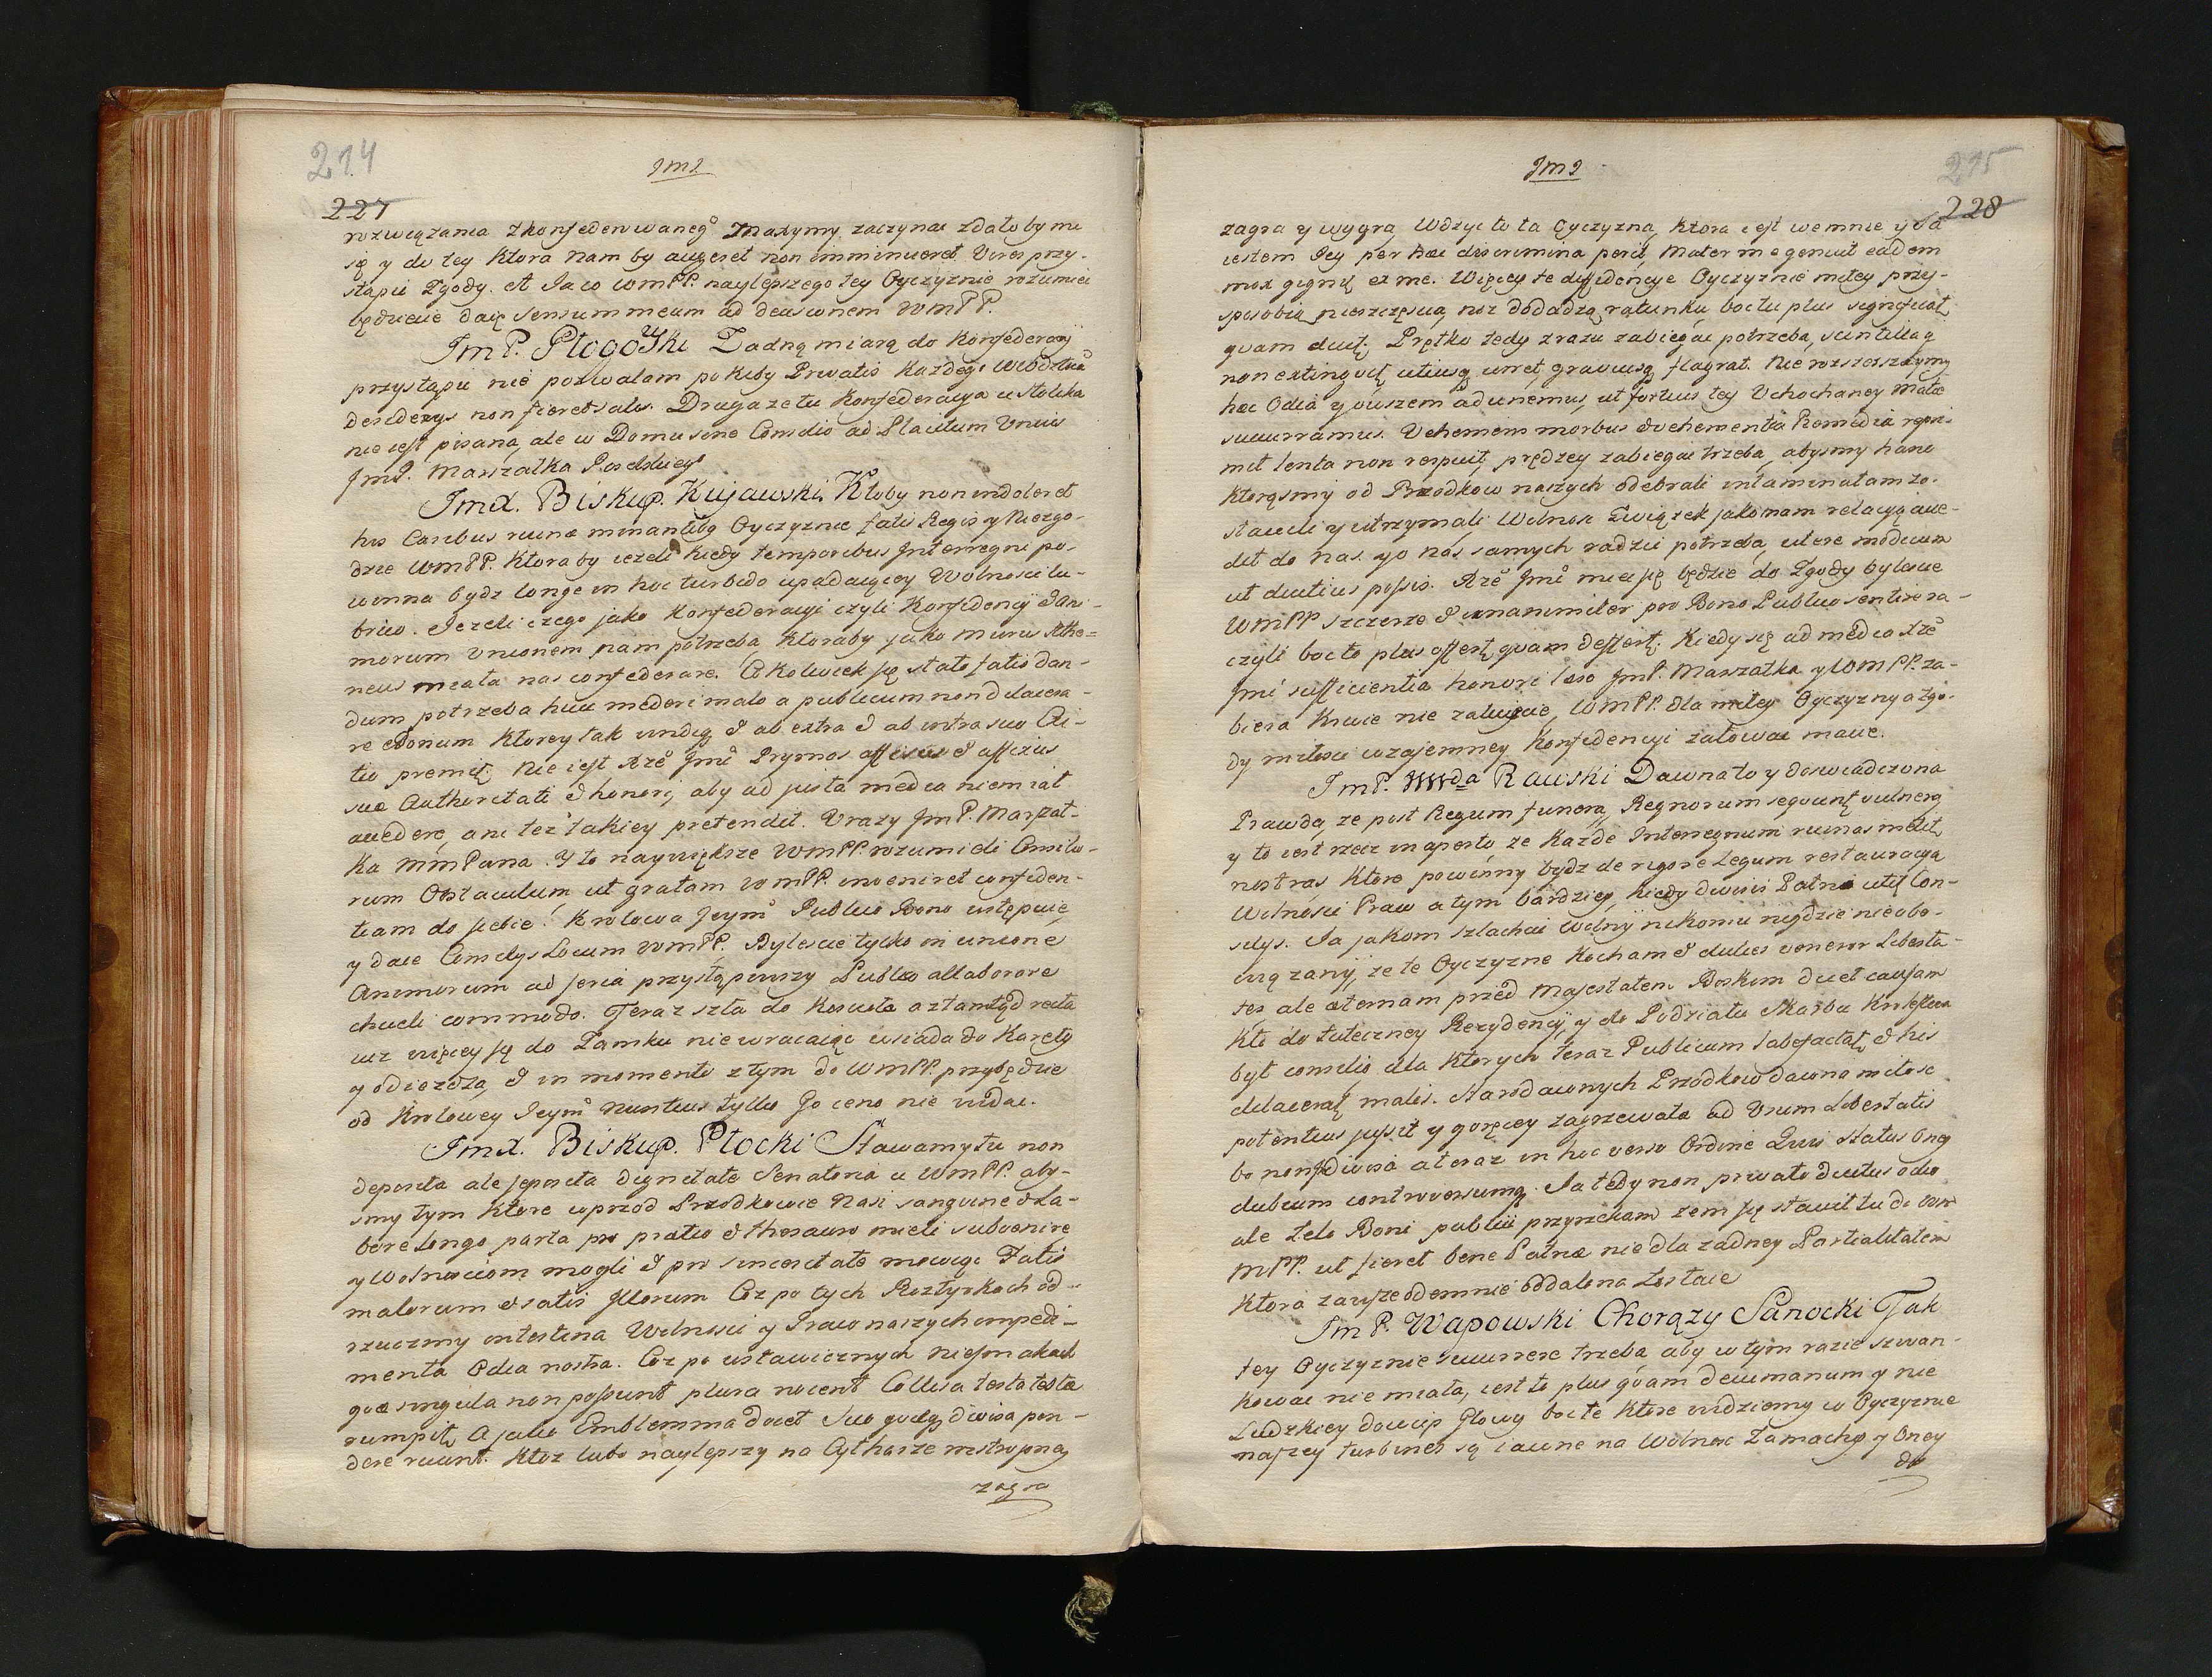 214
JmJ
227
rozwiązania zkonfederowaneg° Maxymy zaczynac zdało by mi
się y do tey ktora nam by augeret non imminueret Vires przy-
stąpic Zgody. et Ja co WMPP. naylepszego tey Oyczyznie rozumiec
będziecie daię sensum meum ad decisionem WMPP.
Jm P. Płogowski Zadną miarą do Konfederacyi
przystąpic nie pozwalam poki by Privatis każdego Wdztwa
desiderys non fieret satis. Druga ze tu Konfederacya u stolika
nie iest pisaną, ale w Domu sine Consilio ad Placitum Unius
JmP. Marszałka Poselskiego
Jmx. Biskup. Kujawski. Ktoby non indoleret
his Casibus ruina minantibq Oyczyznie fatis Regis y Niezgo-
dzie WMPP. ktora by ieżeli kiedy temporibus Interregni po-
winna bydz longe in hoc turbido upadaiącey Wolnosci lu-
brico. Jezeli czego jako Konfederacyi czyli Konfidencyi & Ani-
morum Unionem nam potrzeba ktoraby jako murus Athe-
neus miała nas confederare. Cokolwiek się stało fatis dan-
dum potrzeba huic mederi malo a publicum non dilacera-
re Bonum ktorey tak undiq & ab extra & ab intra suo Ci-
tio premit. Nie iest Xże Jmc Prymas affixus & affixius
suæ Authoritati & honori, aby ad justa media niemiał
accedere, ani też takiey pretendit. Urazy Jm P. Marszał-
ka MmPana. Y to naywiększe WMPP. rozumieli Consilio-
rum Obstaculum, ut gratam WMPP. inveniret confiden-
tiam do siebie. Krolowa Jeym° Publico Bono ustępuie
y daie Comitys Locum WMPP. Bylescie tylko in unione
Animorum ad seria przystąpiwszy Publico allaborare
chcieli commodo. Teraz szła do Koscioła a ztamtąd recta
iuz więcey się do Zamku niewracaiąc wsiada do Karety
y odieżdza, & in momento z tym do WMPP. przybędzie
od Krolowey Jeym° Nuntius tylko Go ceno nie widac.
Jmx. Biskup. Płocki Stawamy tu non
deposita ale seposita dignitate Senatoria u WMPP. aby-
smy tym ktore wprzod Przodkowie Nasi sanguine & La-
bore longo parta pro pratio & thesauro mieli subvenire
y Wolnosciom mogli & pro sinceritate mowiąc Fatis
malorum & satis Illorum Coz po tych Rostyrkach od-
rzucmy intestina Wolnosci y Praw naszych impedi-
menta Odia nostra. Coz po ustawicznych niesmakach
quæ singula non possunt plura nocent Collisa testa testa
rumpit, A jako Emblemma docet Suo quæq divisa pon-
dere ruunt. Ktoz lubo naylepszy na Cytharze niestroyney
zagra
JmJ
215
228
zagra y wygrą Wdzyć to ta Oyczyzna, ktora iest wemnie y Ja
iestem Jey per hæc discrimina perit, Mater me genuit eadem
mox gignit ex me. Więcey te diffidencye Oyczyznie miłey przy-
sposobią nieszczęscia, niz dodadzą ratunku bo ctu plus significat
quam ducit. Prętko tedy zrazu zabiegac potrzeba, scintilla q
non extinguit, citiusq urret, graviusq flagrat. Nie rozszerzaymy
hæc Odia y owszem adunemus, ut fortius tey Ukochaney Matce
sucurramus. Vehemens morbus & vehementia Remedia requi-
mit lenta non respuit, prędzey zabiegac trzeba, abysmy hanc
ktorąsmy od Przodkow naszych odebrali intaminatam zo-
stawili y utrzymali, Wolnosc Związek jako nam relacyą acce-
dit do nas. yo nas samych radzic potrzeba, utere modicum
ut diutius possis. Xże Jmc miec się będzie do Zgody bylescie
WMPP szczerze & unanimiter pro Bono Publico sentire ra-
czyli bo cto plus offert, quam deffert. Kiedy się ad media Xże
Jmc sufficientia honori læso JmP. Marszałka y WMPP. za-
biera Krwie nie załuiecie, WMPP. dla miłey Oyczyzny o zgo-
dy miłosci wzajemney Konfidencyi załowac macie.
JmP. Wwda Rawski Dawna to y doswiadczona
Prawda, ze post Regum funera, Regnorum sequunt vulnera
y to iest rzecz in aperto ze każde Interregnum ruinas medit,
nostras ktore powinny bydz de rigore Legum restauracya
Wolnosci Praw a tym bardziey, kiedy divisis Patria utit Con-
silys. Ja jakom szlachcic wolny nikomu nigdzie nieobo-
wiązany, ze te Oyczyzne kocham & dulces veneror Liberta-
tes, ale æternam przed Majestatem Boskim dicet causam
Kto do tuteczney Rezydencyi, y do Podziału Skarbu Krolestwa
był consilio dla ktorych teraz Publicum labefactat, & his
dilacerat malis. Starodawnych Przodkow dawna miłosc
potentius jussit y goręcey zagrzewała ad Usum Libertatis
bo non divisa a teraz in hoc verso Ordine Quis status Ony
dubium controversumq. Ja tedy non privato ductus odio
ale Zelo Boni publici, przyrzekam zem się stawił tu do WM
MPP. ut fieret bene Patriæ nie dla zadney Partialitatem
ktora zawsze odemnie oddalona zostaie
Jm P. Wapowski Chorązy Sanocki Tak
tey Oyczyznie sucurrere trzeba aby w tym razie szwan-
kowac nie miała, iest to plus quam decumanum y nie
Ludzkiey dowcip Głowy bo te ktore widziemy w Oyczyznie
naszey turbines są iawne na Wolnosc Zamachy y Oney
do